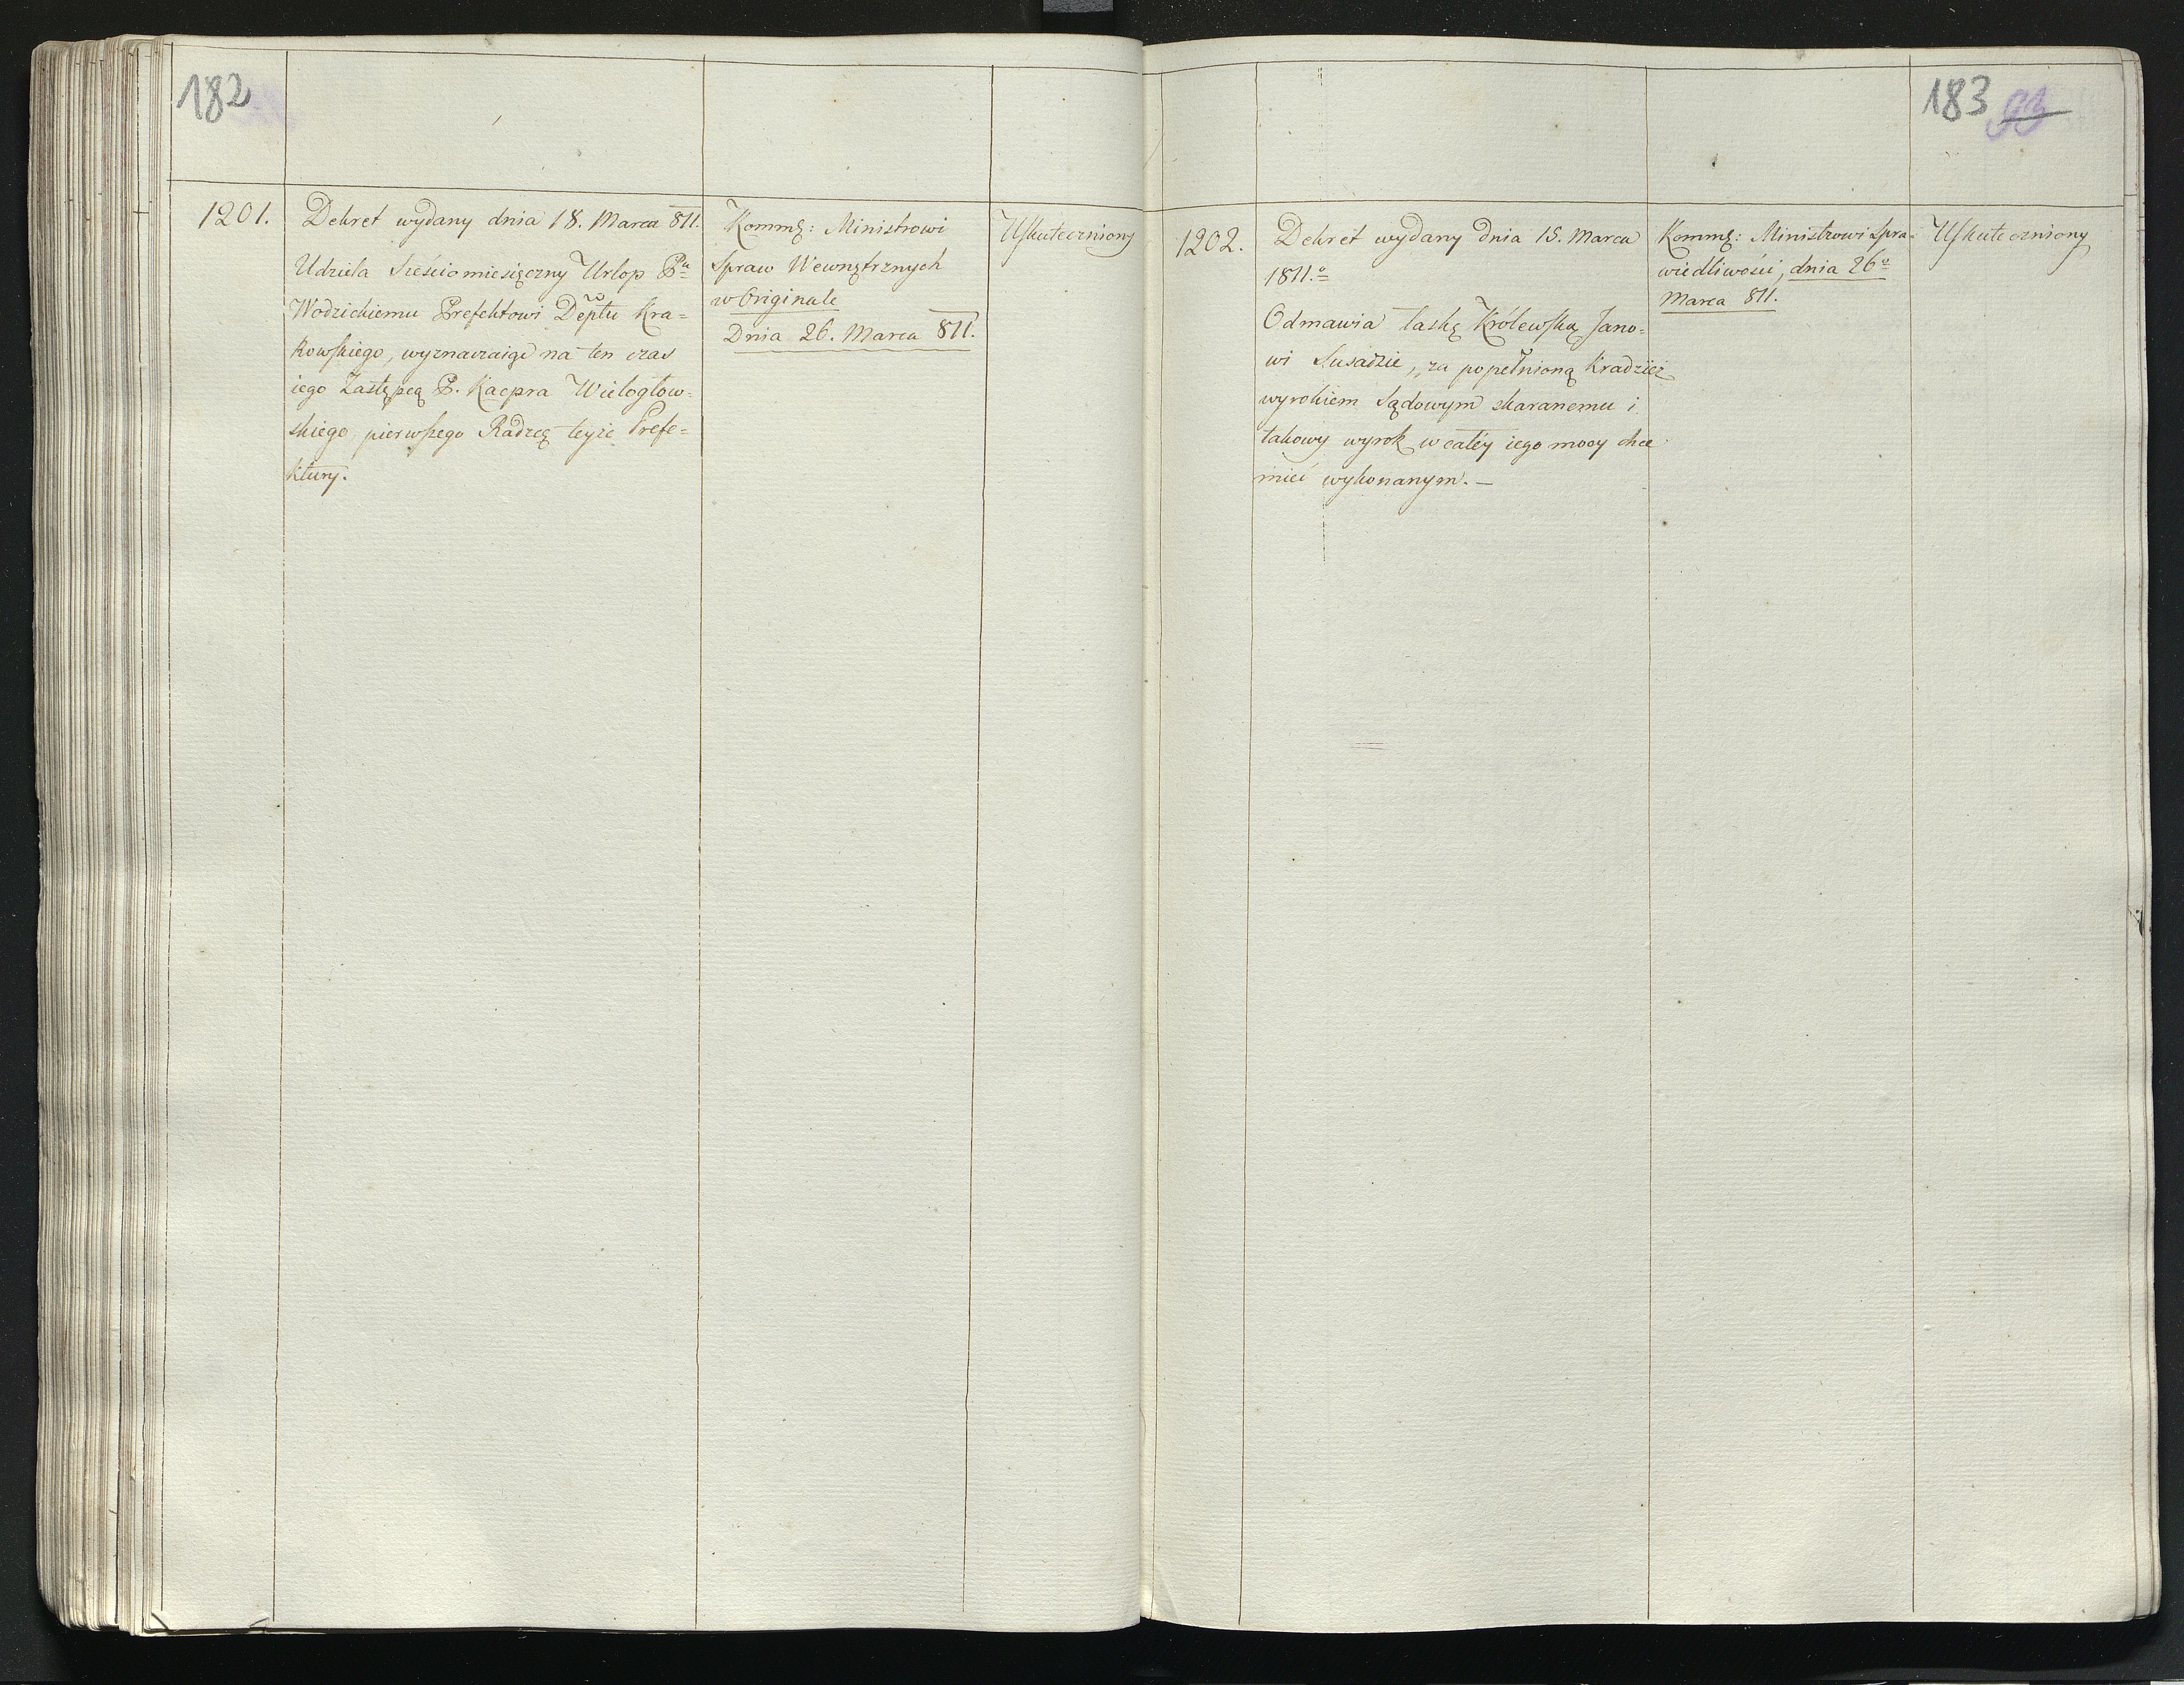 182
1201.
Dekret wydany dnia 18. Marca 811.
Udziela sześciomiesięczny Urlop Pu
Wodzickiemu Prefektowi Deptu Kra=
kowskiego, wyznaczaiąc na ten czas
iego Zastępcą P. Kacpra Wielogłow=
skiego, pierwszego Radzcę teyże Prefe=
ktury.
Kommę: Ministrowi
Spraw Wewnętrznych
w Originale
Dnia 26. Marca 811.
Uskuteczniony
183 93
1202.
Dekret wydany dnia 15. Marca
1811.o
Odmawia łaskę Królewską Jano=
wi Susadzie, za popełnioną Kradzież
wyrokiem Sądowym skaranemu i
takowy wyrok w całéy iego mocy chce
mieć wykonanym. —
Kommę: Ministrowi Spra=
wiedliwości, dnia 26o
Marca 811.
Uskuteczniony